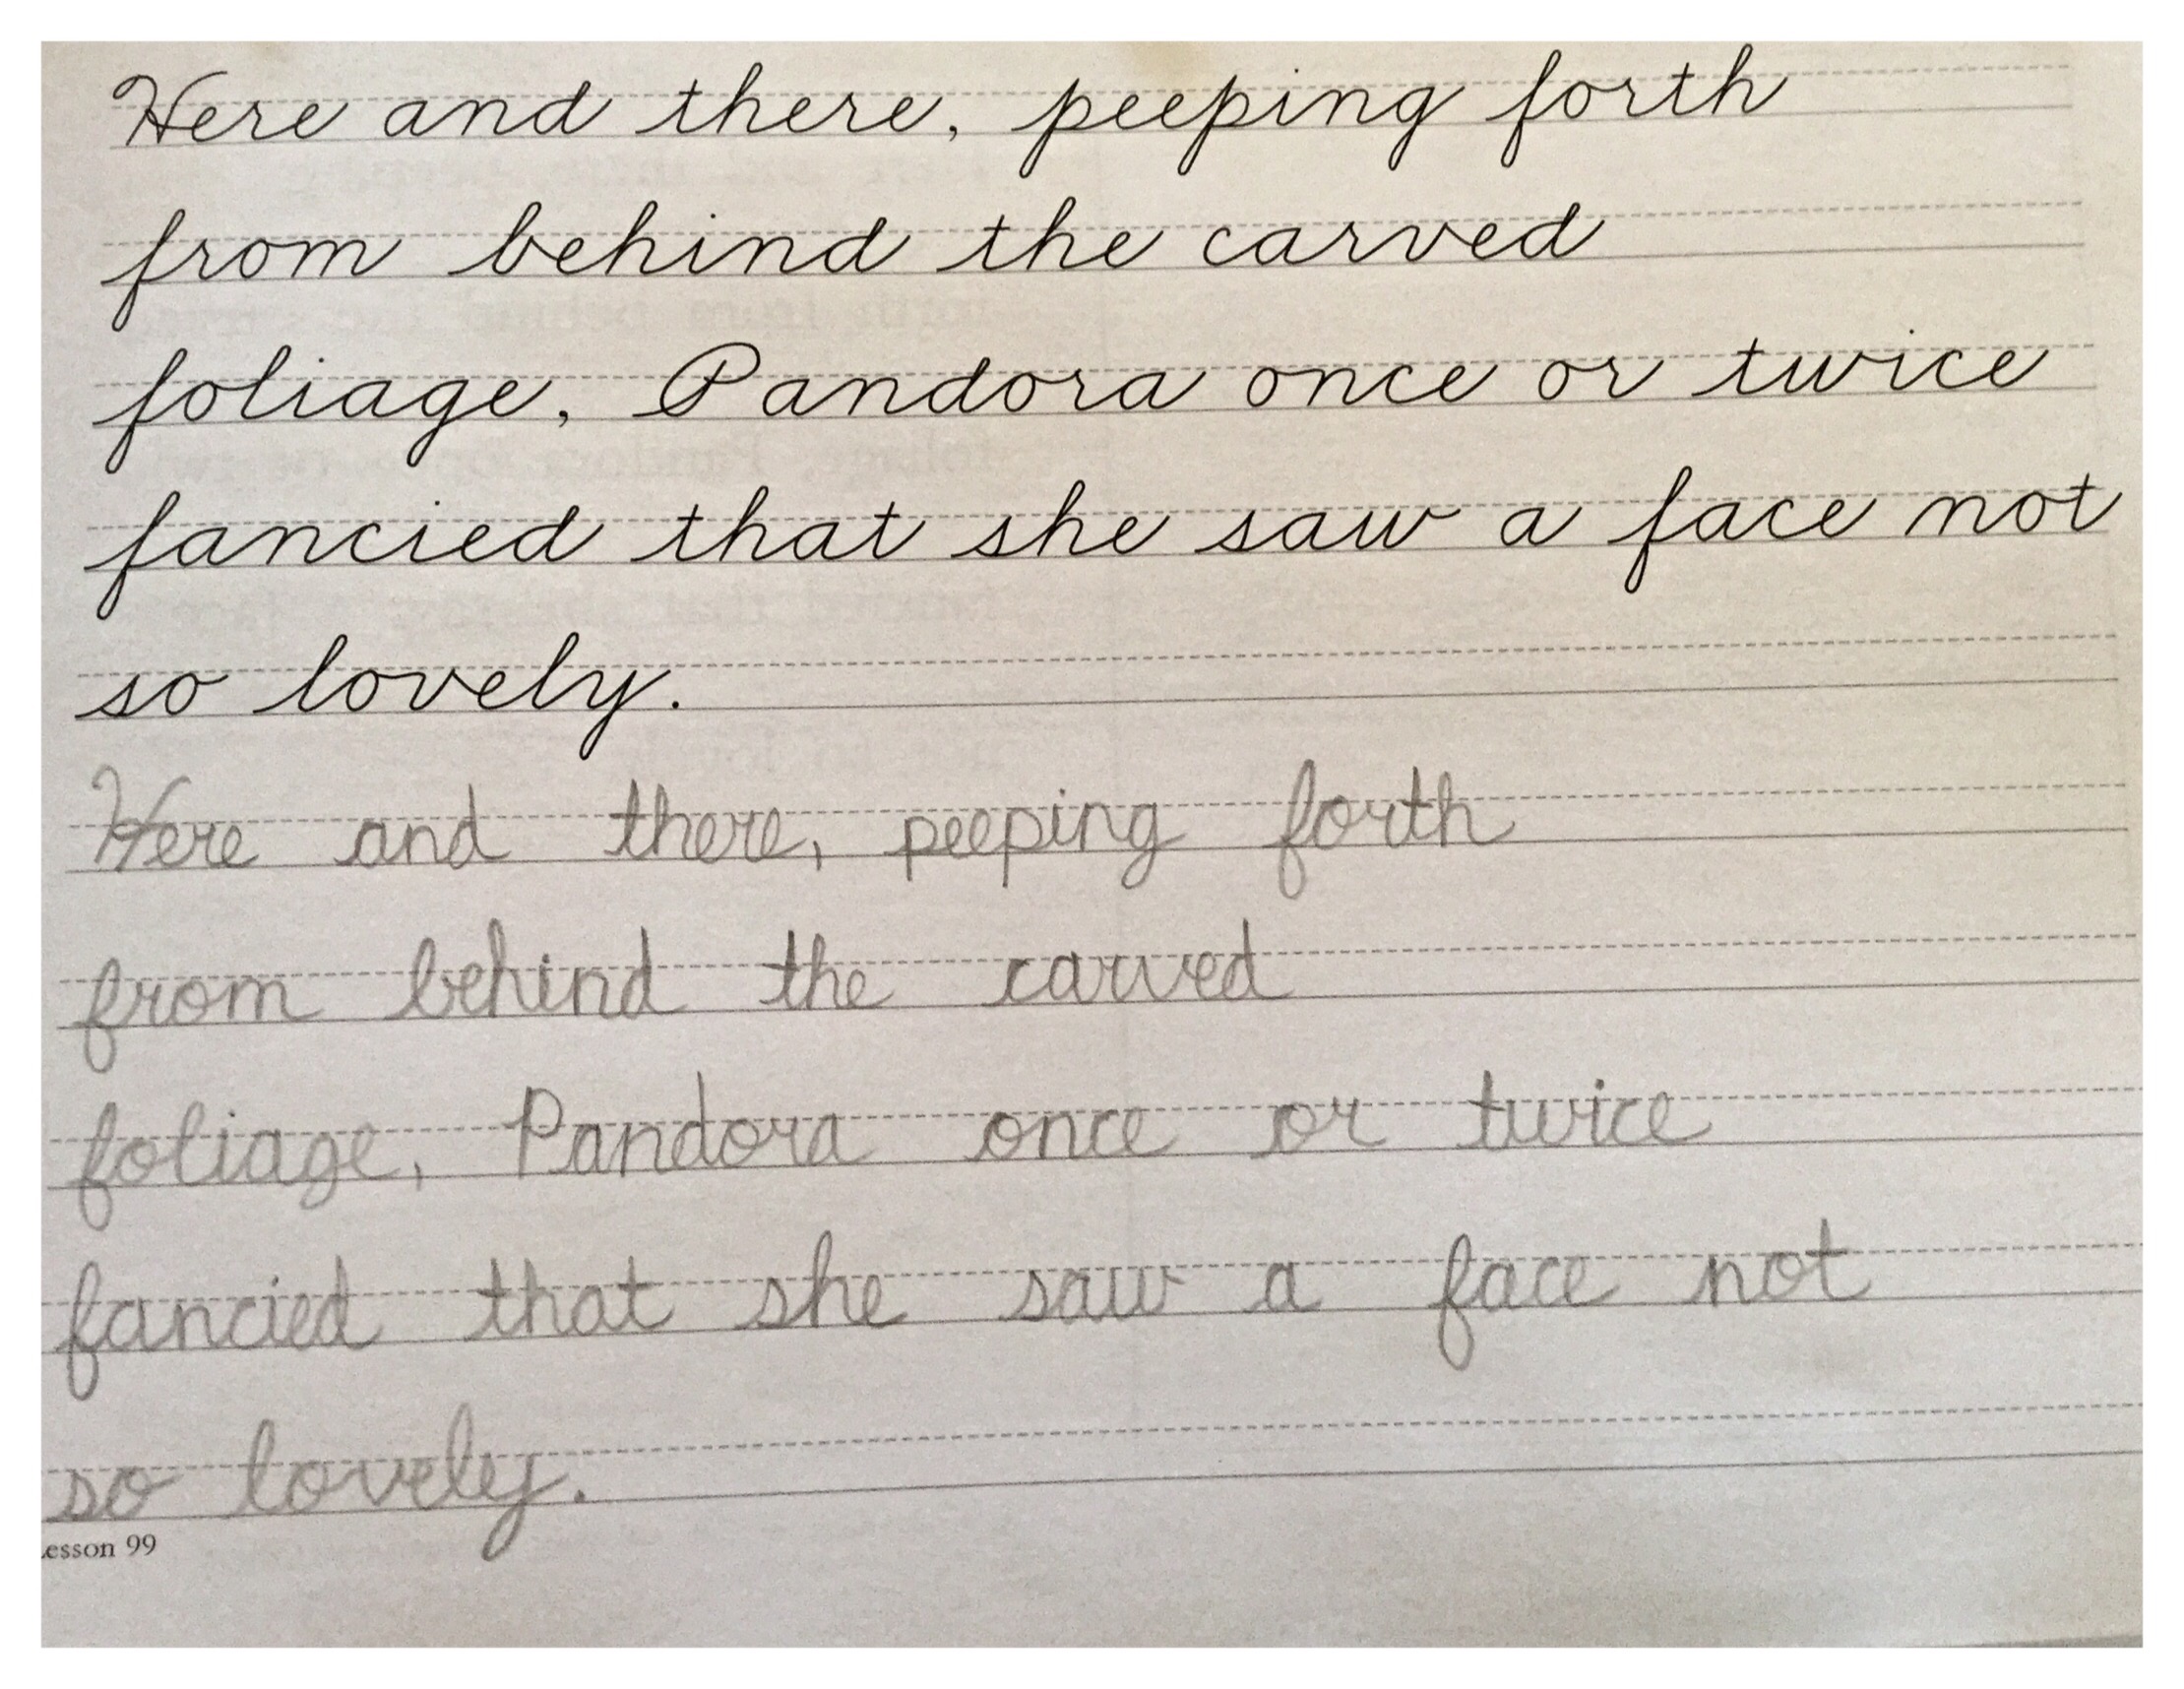 Here and there, peeping forth
from behind the carved
foliage, Pandora once or twice
fancied that she saw a face not
so lovely.
Here and there, peeping forth
from behind the carved
foliage, Pandora once or twice
fancied that she saw a face not
so lovely.
esson 99